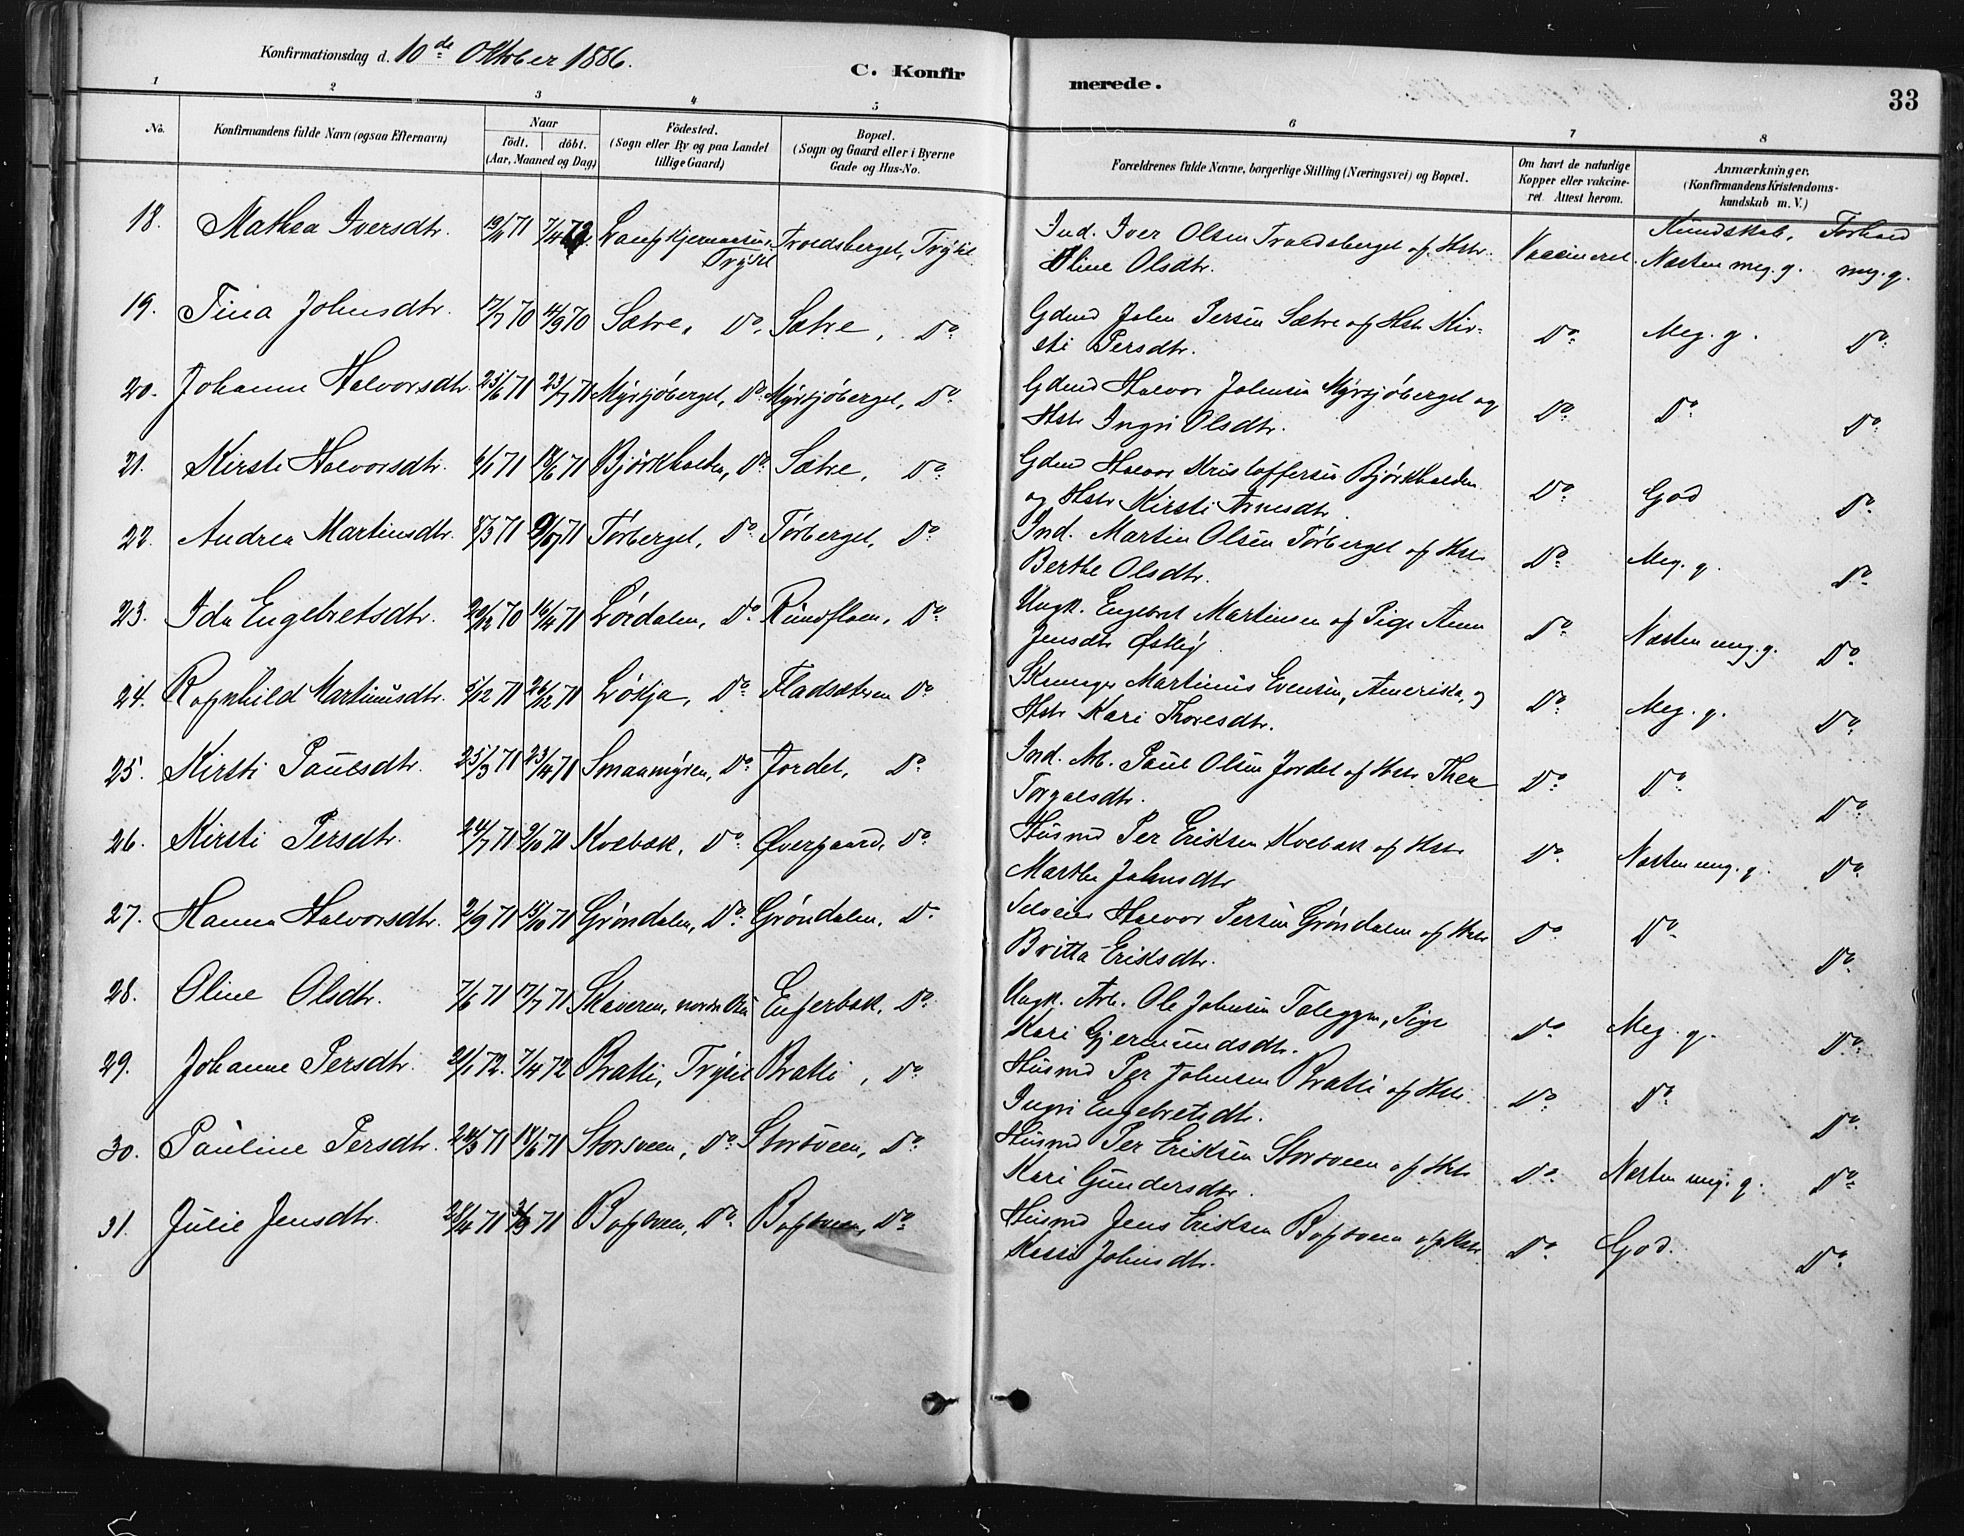 Konfirmationsdag d. 10de Oktober 1886.
C. Konfirmerede.
33
1 2 3 4 5 6 7 8
No.
Konfirmandens fulde Navn (ogsaa Efternavn)
Naar
födt. döbt.
(Aar, Maaned og Dag)
Födested.
(Sogn eller By og paa Landet
tillige Gaard)
Bopæl.
(Sogn og Gaard eller i Byerne
Gade og Hus-No.
Forældrenes fulde Navne, borgerlige Stilling (Næringsvei) og Bopæl.
Om havt de naturlige
Kopper eller vakcine-
ret. Attest herom.
Anmærkninger.
(Konfirmandens Kristendoms-
kundskab m. V.)
Kundskab. Forhold
18. Mathea Iversdtr. 71 7/4 72 Trysil Troedsberget, Trysil Ind. Iver Olsen Troedsberget og Hstr. Vaccineret. Næsten meg. g. meg. g.
Oline Olsdtr.
19. Tina Johnsdtr. 17/7 70 11/9 70 Sætre, Do. Sætre, Do. Gdmd John Persen Sætre og Hstr Kir- Do. Meg. g. Do.
sti Persdtr.
20. Johanne Halvorsdtr. 25/6 71 23/7 71 Myrsjöberget, Do. Myrsjöberget, Do. Gdmd Halvor Johnsen Myrsjöberget og Do. Do. Do.
Hstr Ingri Olsdtr.
21. Kirsti Halvorsdtr. 6/1 71 18/6 71 Björkholden, Do. Sætre, Do. Gdmd Halvor Kristoffersen Björkholden Do. God Do.
og Hstr Kirsti Arnesdtr.
22. Andrea Martinsdtr. 8/3 71 9/7 71 Törberget, Do. Törberget, Do. Ind. Martin Olsen Törberget og Hstr Do. Meg. g. Do.
Berthe Olsdtr.
23. Ida Engebretsdtr. 29/12 70 16/4 71 Lördalen, Do. Rundfloen, Do. Ungk. Engebret Martinsen og Pige Anne Do. Næsten meg. g. Do.
Jensdtr Østby.
24. Ragnhild Martinusdtr. 5/12 71 26/12 71 Do. Fladsæteren Do. Martinus Evensen, Amerika, og Do. Meg. g. Do.
Hstr Kari Thoresdtr.
25. Kirsti Paulsdtr. 25/3 71 23/4 71 Smaamyren, Do. Jordet, Do. Ind. Arb. Paul Olsen Jordet og Hstr Thea Do. Do. Do.
26. Kirsti Persdtr. 24/7 71 9/10 71 Kvebæk, Do. Øvergaard, Do. Husmd Per Eriksen Kvebæk og Hstr Do. Næsten meg. g. Do.
Marthe Johnsdtr
27. Hanna Halvorsdtr. 2/9 71 15/10 71 Gröndalen, Do. Gröndalen, Do. Selveier Halvor Persen Gröndalen og Hstr Do. Do. Do.
Britta Eriksdtr.
28. Oline Olsdtr. 7/6 71 17/7 71 Engerbæk, Do. Ungk. Arb. Ole Johnsen Pige Do. Meg. g. Do.
Kari Gjermundsdtr.
29. Johanne Persdtr. 21/1 72. 7/4 72 Bratli, Trysil Bratli, Do. Husmd Per Johnsen Bratli og Hstr. Do. Do. Do.
Ingri Engebretsdtr.
30. Pauline Persdtr. 28/3 71 18/6 71 Storsveen, Do. Storsveen, Do. Husmd Per Eriksen Storsveen og Hstr Do. Næsten meg. g. Do.
Kari Gundersdtr.
31. Julie Jensdtr. 28/4 71 3/9 71 Do. Do. Husmd Jens Eriksen og Hstr Do. God. Do.
Johnsdtr.